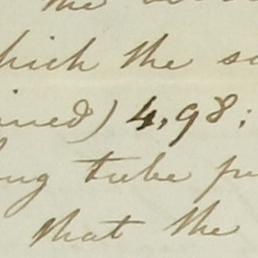 the
which the
ined) 4,98;
ng tube
that the